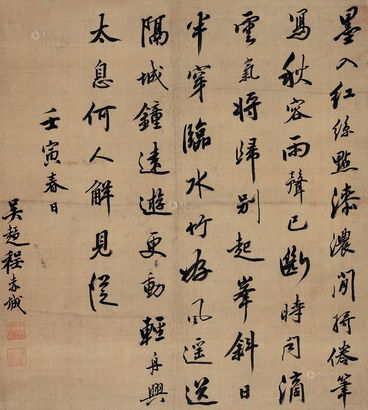 墨入紅絲點漆濃閒將倦筆
寫秋容雨聲已斷時聞滴
雲氣將歸別起峯斜日
半穿臨水竹好風遥送
隔城鐘遠遊更動輕舟興
太息何人解見從
壬寅春日
吴趨程